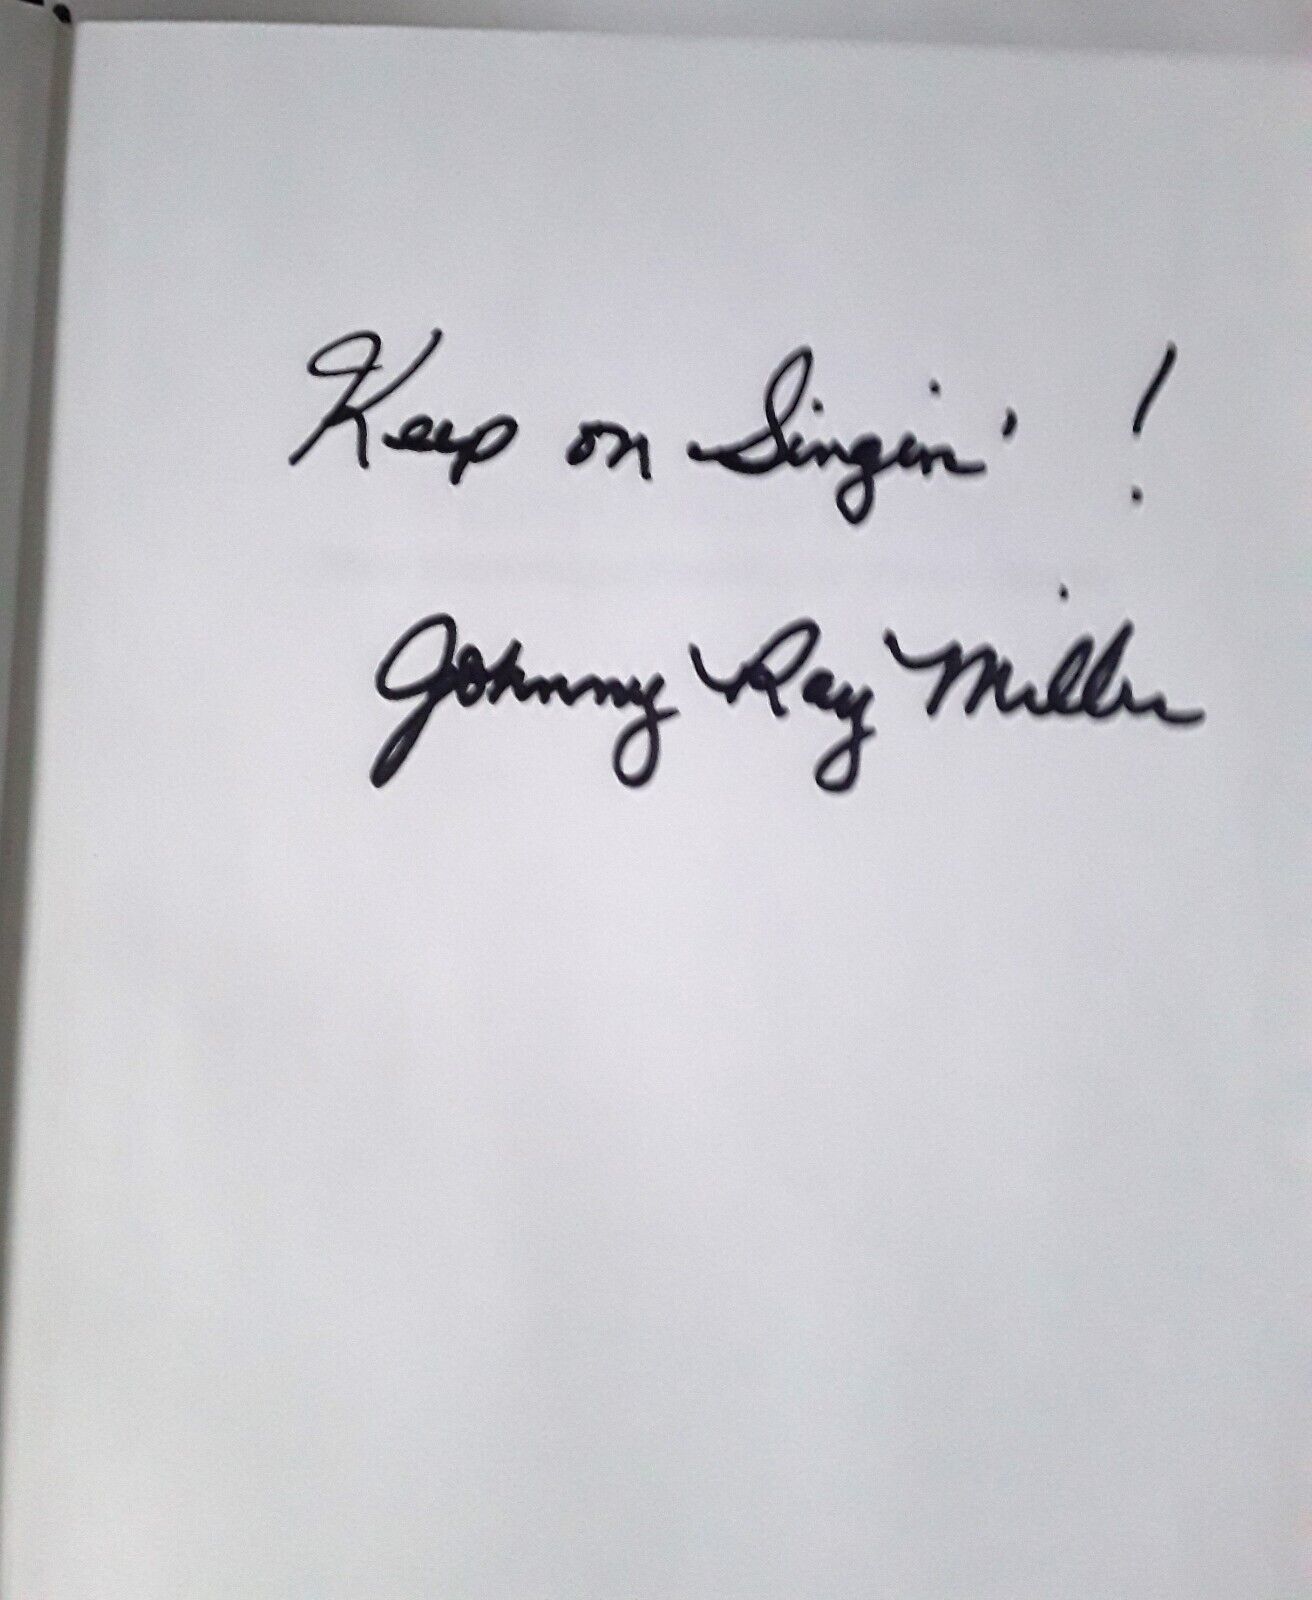 Keep on Singin' !
Johnny Ray Miller